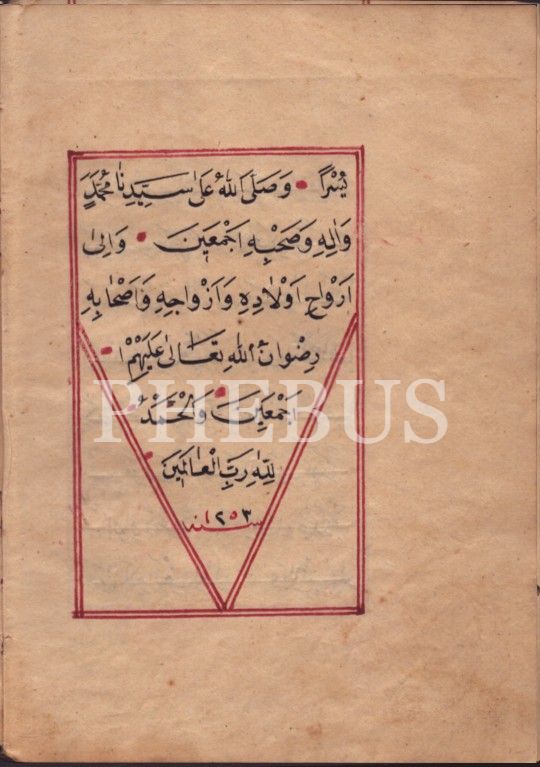 يُسْرًا وَصَلَّى اللهُ عَلٰى سَيِّدِنَا مُحَمَّدٍ
وَاٰلِهِ وَصَحْبِهِ اَجْمَعِينَ وَاِلٰى
اَرْوَاحِ اَوْلَادِهِ وَاَزْوَاجِهِ وَاَصْحَابِهِ
رِضْوَانُ اللهِ تَعَالٰى عَلَيْهِمْ
اَجْمَعِينَ وَالْحَمْدُ
لِلّٰهِ رَبِّ الْعَالَمِينَ
سنه ١٢٥٣
PHEBUS